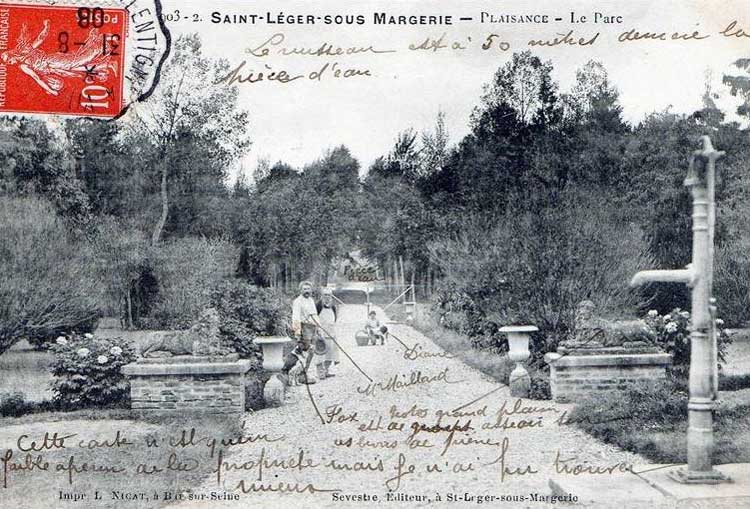 903 - 2. SAINT-LÉGER-SOUS MARGERIE — PLAISANCE - Le Parc
Le ruisseau est à 50 mètres derrière la
pièce d'eau.
RÉPUBLIQUE FRANÇAISE
POSTES
10
31 - 8
08
Diane
Mr Maillard
Fox
Notre grand plain
est de
Cette carte n'est qu'un
faible aperçu de la propriété mais je n'ai pu trouver
mieux
Impr. L. NICAT, à Bar-sur-Seine
Sevestre, Editeur, à St-Léger-sous-Margerie